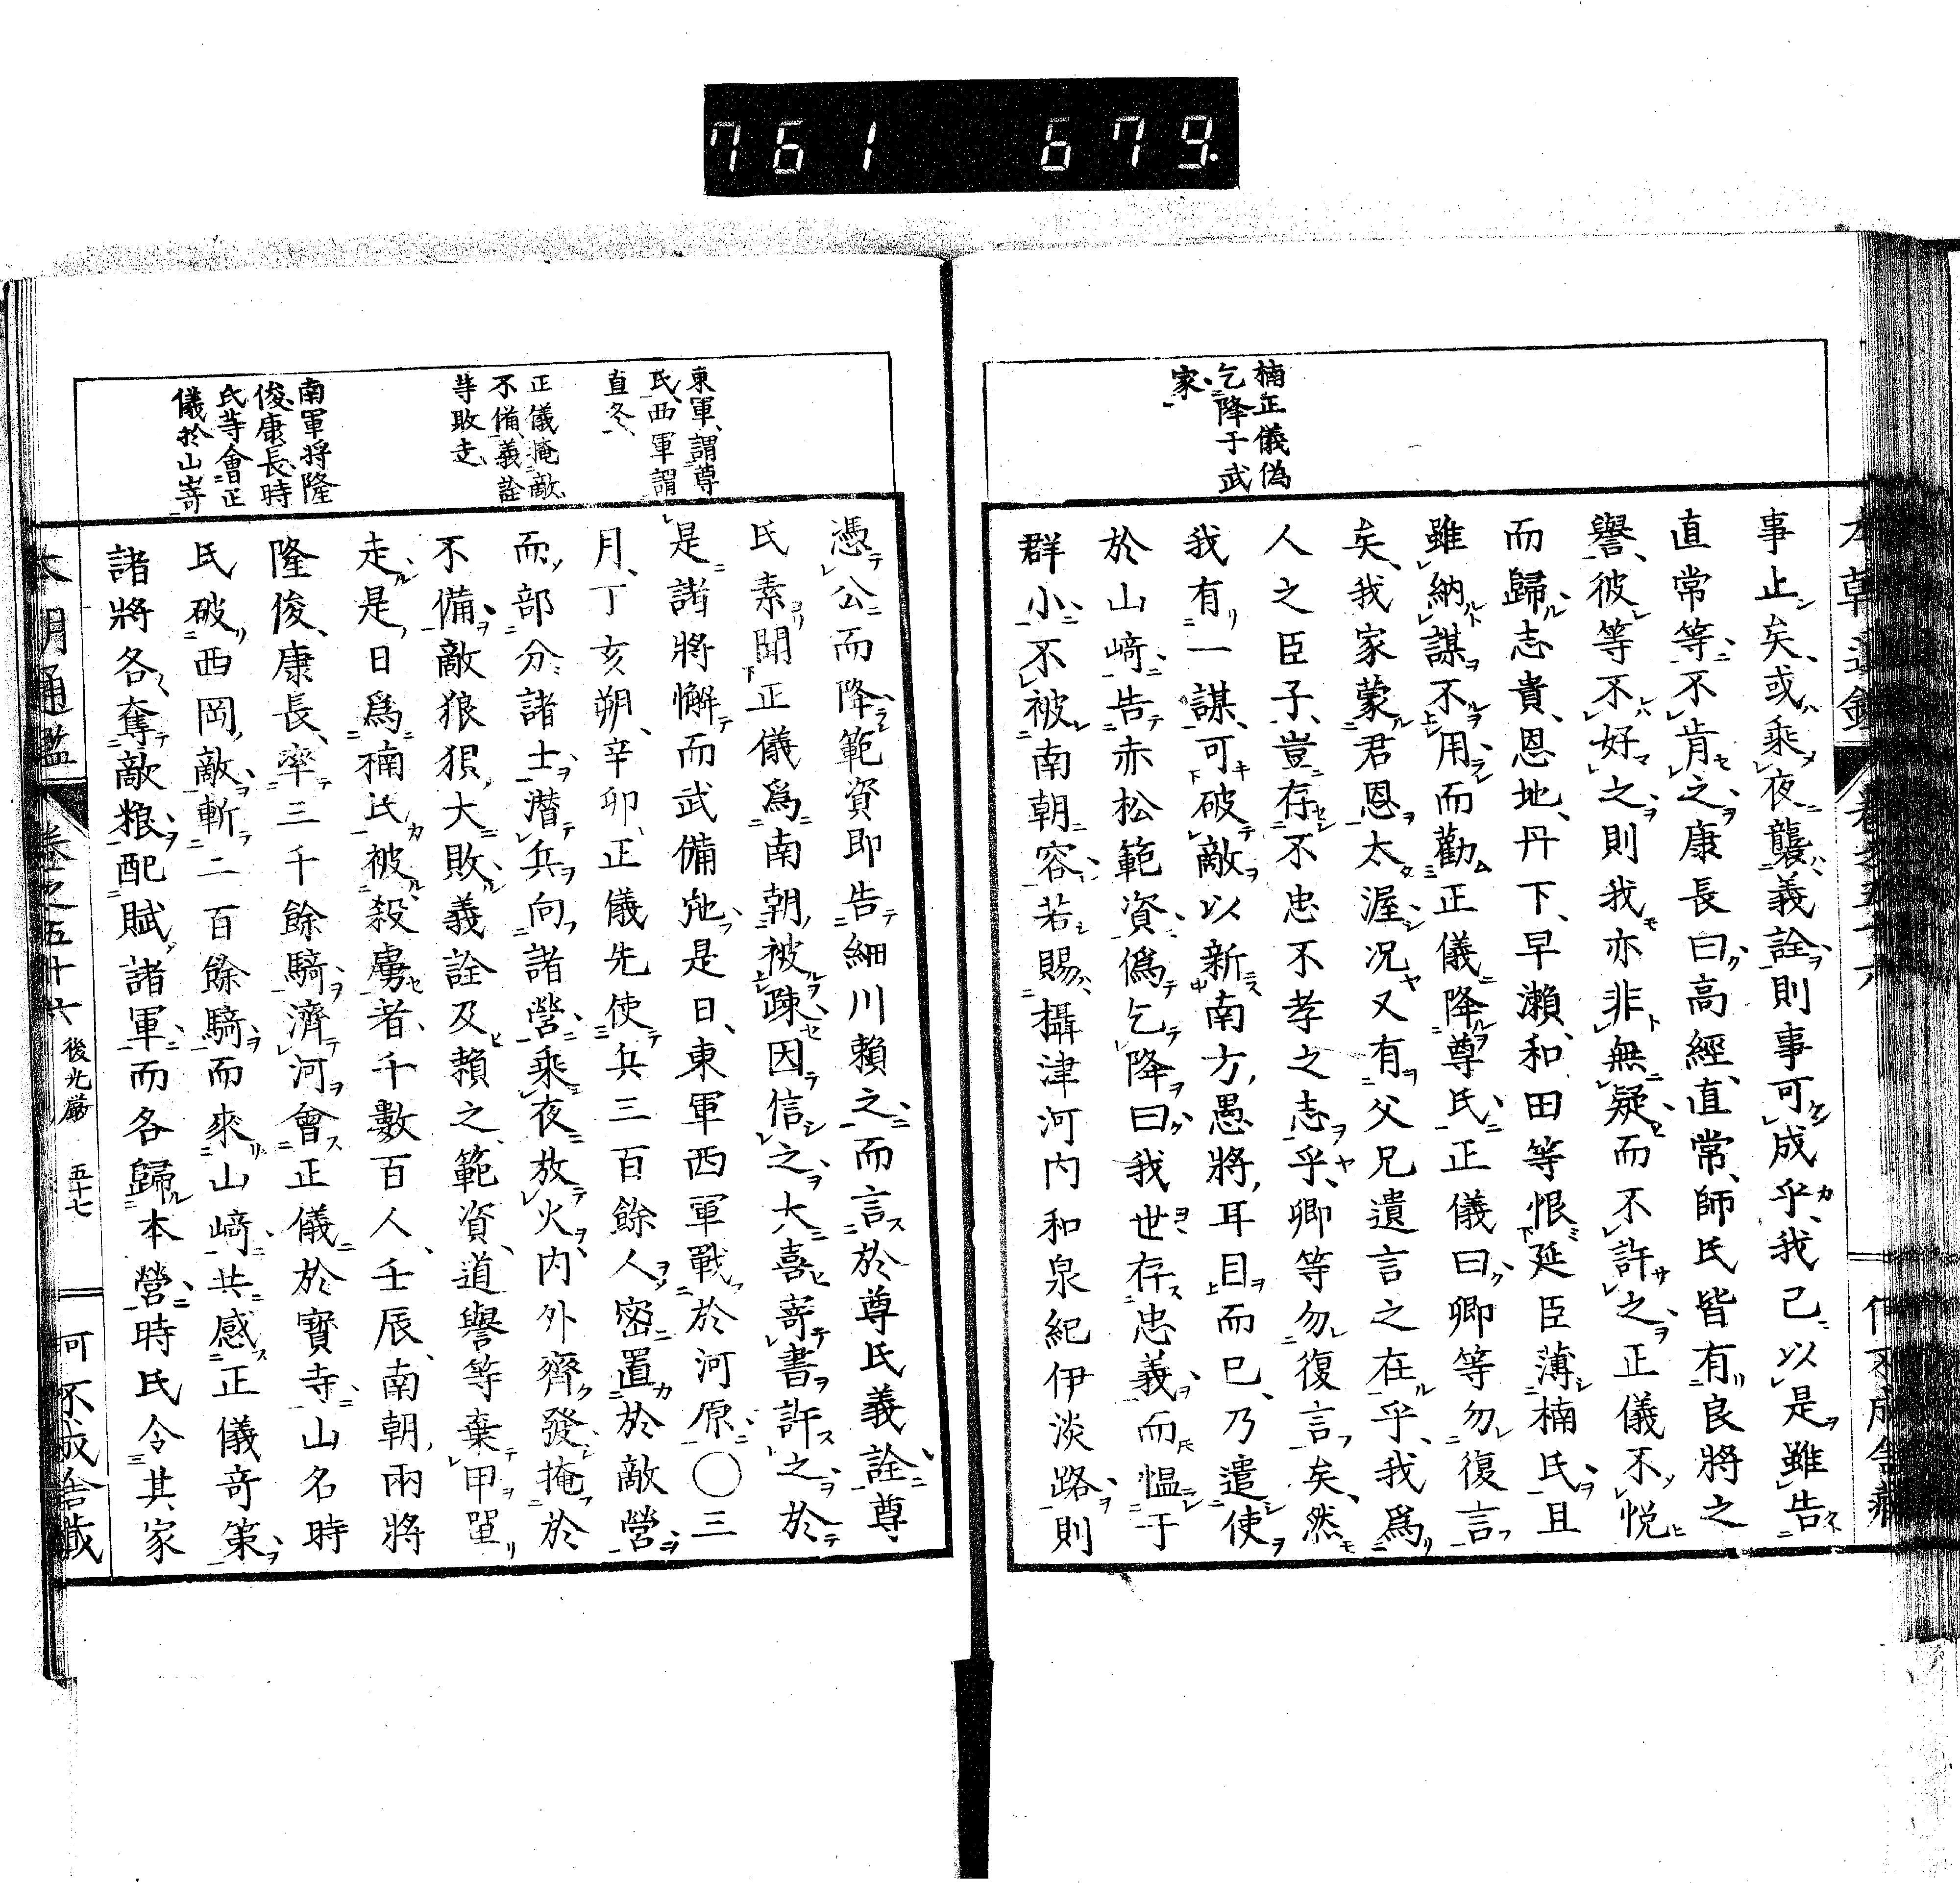 761 679.
楠正儀偽
乞降于武
家
事止矣、或乘夜襲義詮則事可成乎、我已以是雖告
直常等、不肯之、康長曰、高經、直常、師氏皆有良將之
譽、彼等不好之則我亦非無疑而不許之、正儀不悅
而歸、志貴、恩地、丹下、早瀨、和田等恨延臣薄楠氏且
雖納謀不用而勸正儀降尊氏、正儀曰、卿等勿復言
矣、我家蒙君恩太渥、况又有父兄遺言之在乎、我爲
人之臣子、豈存不忠不孝之志乎、卿等勿復言矣、然
我有一謀、可破敵以新南方愚將耳目而已、乃遣使
於山﨑告赤松範資、偽乞降曰、我世存忠義而慍于
群小、不被南朝容、若賜攝津河内和泉紀伊淡路則
東軍、謂尊
氏、西軍謂
直冬、
正儀掩敵
不備、義詮
等敗走、
南軍將隆
俊、康長、時
氏等會正
儀於山嵜
憑公而降、範資即告細川賴之而言於尊氏義詮、尊
氏素聞正儀爲南朝被疎、因信之、大喜寄書許之、於
是諸將懈而武備弛、是日、東軍西軍戰於河原、〇三
月、丁亥朔、辛卯、正儀先使兵三百餘人密置於敵營
而部分諸士、潜兵向諸營、乘夜放火、内外齊發、掩於
不備、敵狼狽、大敗、義詮及賴之、範資、道譽等棄甲單
走、是日爲楠氏被殺虜者、千數百人、壬辰、南朝兩將
隆俊、康長、率三千餘騎、濟河會正儀於寳寺、山名時
氏破西岡敵、斬二百餘騎而來山﨑、共感正儀竒策、
諸將各奪敵粮、配賦諸軍而各歸本營、時氏令其家
本朝通鑑 卷之五十六 後光嚴 五十七 可不成舎藏